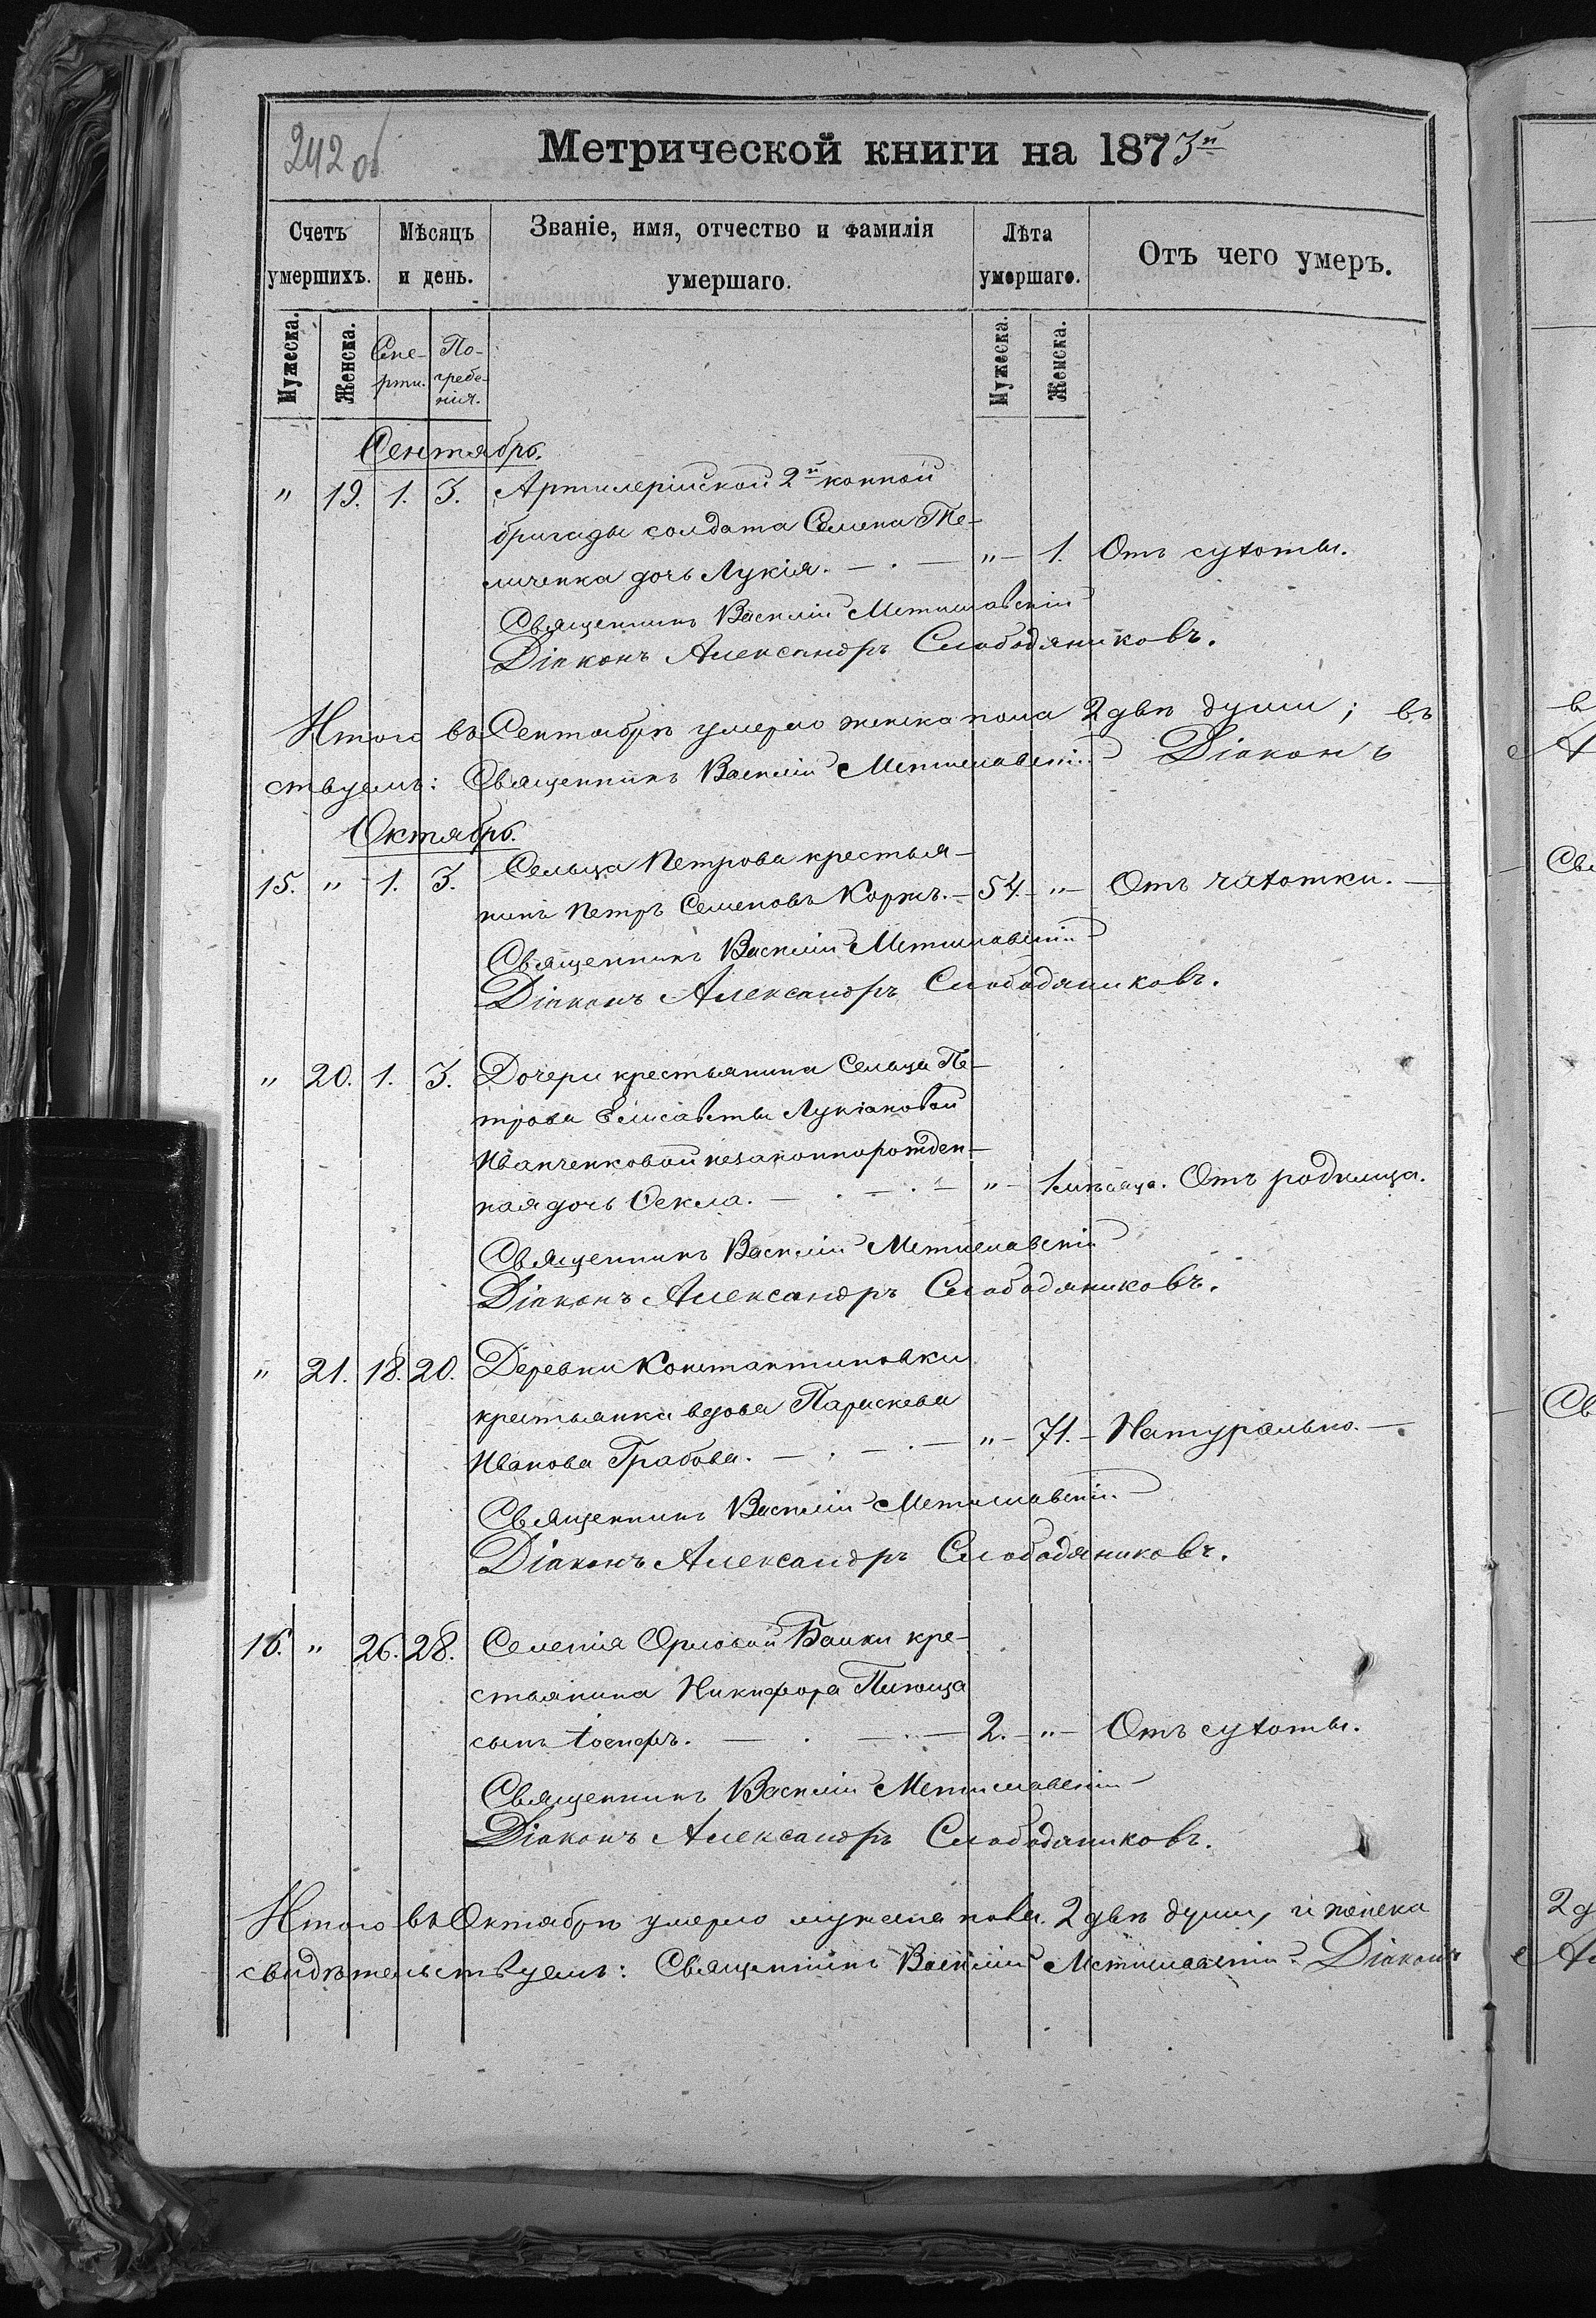 242 об
Метрической книги на 1873й
Счетъ умершихъ.
Мѣсяцъ и день.
Званіе, имя, отчество и фамилія умершаго.
Лѣта умершаго.
Отъ чего умеръ.
Мужеска.
Женска.
Сме-
рти.
По-
гребе-
нія.
Мужеска.
Женска.
Сентябрь.
" 19. 1. 3. Артилерійской 2й конной
бригады солдата Семена Те-
личенка дочь Лукія. — . — " — 1. Отъ сухоты.
Священникъ Василій Мстиславскій
Діаконъ Александръ Слободяниковъ.
Итого въ Сентябрѣ умерло женска пола 2 двѣ души; въ
ствуемъ: Священникъ Василій Мстиславскій Діаконъ
Октябрь.
15. " 1. 3. Сельца Петрова крестья-
нинъ Петръ Семеновъ Коржъ. — 54. — " — Отъ чахотки. —
Священникъ Василій Мстиславскій
Діаконъ Александръ Слободяниковъ.
" 20. 1. 3. Дочери крестьянина Сельца Пе-
трова Елисаветы Лукіановой
Иванченковой незаконнорожден-
ная дочь Ѳекла. — . — . — " — 1 мѣсяца. Отъ родимца.
Священникъ Василій Мстиславскій
Діаконъ Александръ Слободяниковъ.
" 21. 18. 20. Деревни Константиновки
крестьянка вдова Параскева
Иванова Грабова. — . — . — " — 71. — Натурально. —
Священникъ Василій Мстиславскій
Діаконъ Александръ Слободяниковъ.
16. " 26. 28. Селенія Орловой Балки кре-
стьянина Никифора
сынъ Іосифъ. — . — . — 2. — " — Отъ сухоты.
Священникъ Василій Мстиславскій
Діаконъ Александръ Слободяниковъ.
Итого въ Октябрѣ умерло мужеска пола 2 двѣ души, и женска
свидѣтельствуемъ: Священникъ Василій Мстиславскій Діаконъ